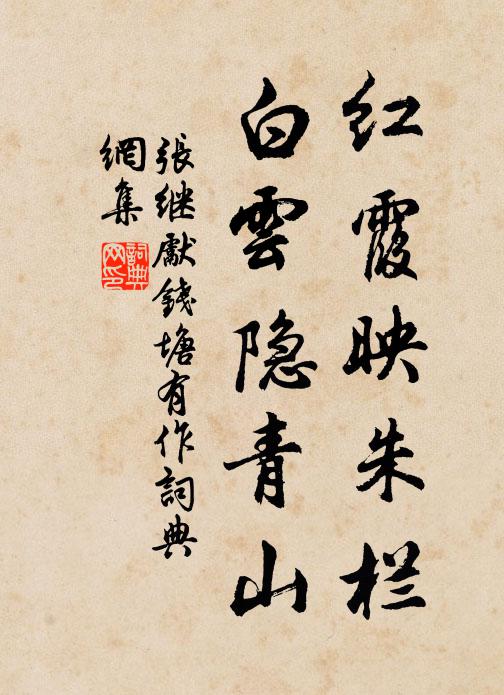 红霞映朱栏
白雲隐青山
張继獻錢塘有作詞典
網集
詞典
网印